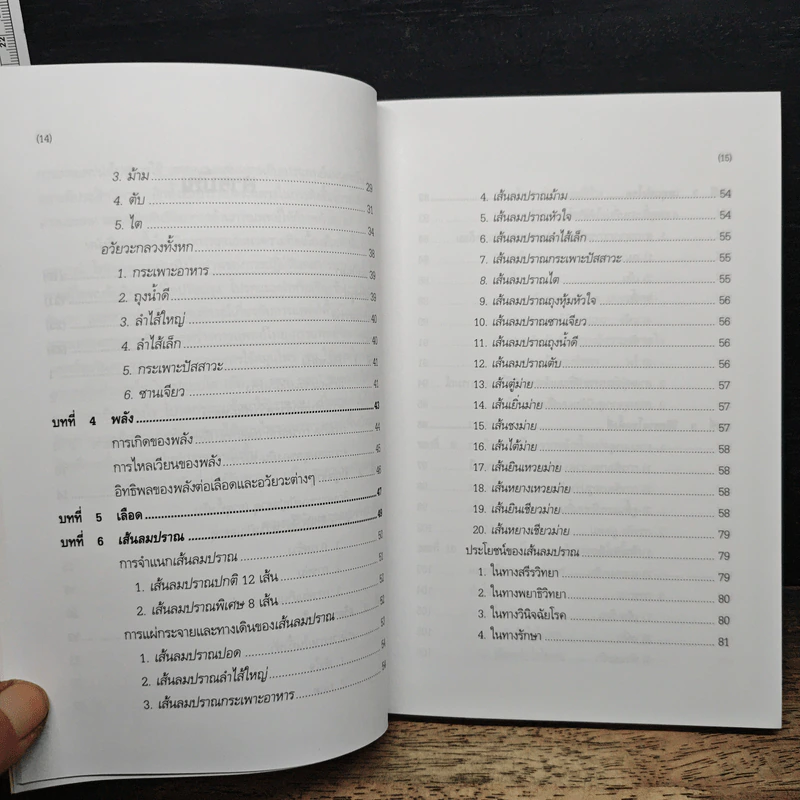 22
(14)
3. ม้าม 29
4. ตับ 31
5. ไต 34
อวัยวะกลวงทั้งหก 38
1. กระเพาะอาหาร 39
2. ถุงน้ำดี 39
3. ลำไส้ใหญ่ 40
4. ลำไส้เล็ก 40
5. กระเพาะปัสสาวะ 41
6. ซานเจียว 41
บทที่ 4 พลัง 43
การเกิดของพลัง 44
การไหลเวียนของพลัง 45
อิทธิพลของพลังต่อเลือดและอวัยวะต่างๆ 46
บทที่ 5 เลือด 47
บทที่ 6 เส้นลมปราณ 49
การจำแนกเส้นลมปราณ 50
1. เส้นลมปราณปกติ 12 เส้น 51
2. เส้นลมปราณพิเศษ 8 เส้น 51
การแผ่กระจายและทางเดินของเส้นลมปราณ 52
1. เส้นลมปราณปอด 53
2. เส้นลมปราณลำไส้ใหญ่ 54
3. เส้นลมปราณกระเพาะอาหาร 54
(15)
4. เส้นลมปราณม้าม 54
5. เส้นลมปราณหัวใจ 54
6. เส้นลมปราณลำไส้เล็ก 55
7. เส้นลมปราณกระเพาะปัสสาวะ 55
8. เส้นลมปราณไต 55
9. เส้นลมปราณถุงหุ้มหัวใจ 56
10. เส้นลมปราณซานเจียว 56
11. เส้นลมปราณถุงน้ำดี 56
12. เส้นลมปราณตับ 56
13. เส้นตู๋ม่าย 57
14. เส้นเยิ่นม่าย 57
15. เส้นชงม่าย 57
16. เส้นไต้ม่าย 58
17. เส้นยินเหวยม่าย 58
18. เส้นหยางเหวยม่าย 58
19. เส้นยินเชียวม่าย 58
20. เส้นหยางเชียวม่าย 79
ประโยชน์ของเส้นลมปราณ 79
1. ในทางสรีรวิทยา 79
2. ในทางพยาธิวิทยา 80
3. ในทางวินิจฉัยโรค 80
4. ในทางรักษา 81